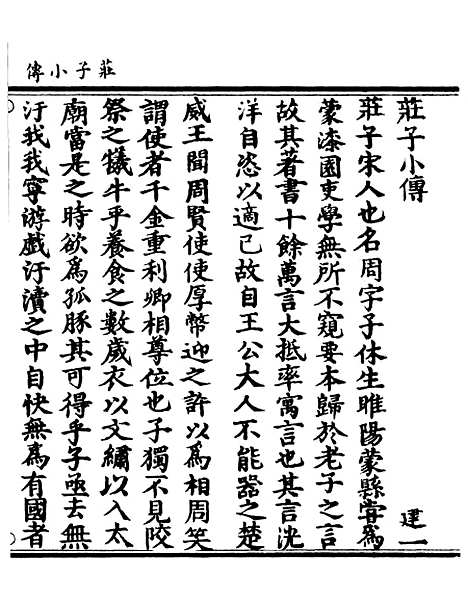 莊子小傳
莊子小傳
建一
莊子宋人也名周字子休生睢陽蒙縣嘗爲
蒙漆園吏學無所不窺要本歸於老子之言
故其著書十餘萬言大抵率寓言也其言洸
洋自恣以適己故自王公大人不能器之楚
威王聞周賢使使厚幣迎之許以爲相周笑
謂使者千金重利卿相尊位也子獨不見郊
祭之犧牛乎養食之數歲衣以文繡以入太
廟當是之時欲爲孤豚其可得乎子亟去無
汙我我寧游戲汙瀆之中自快無爲有國者